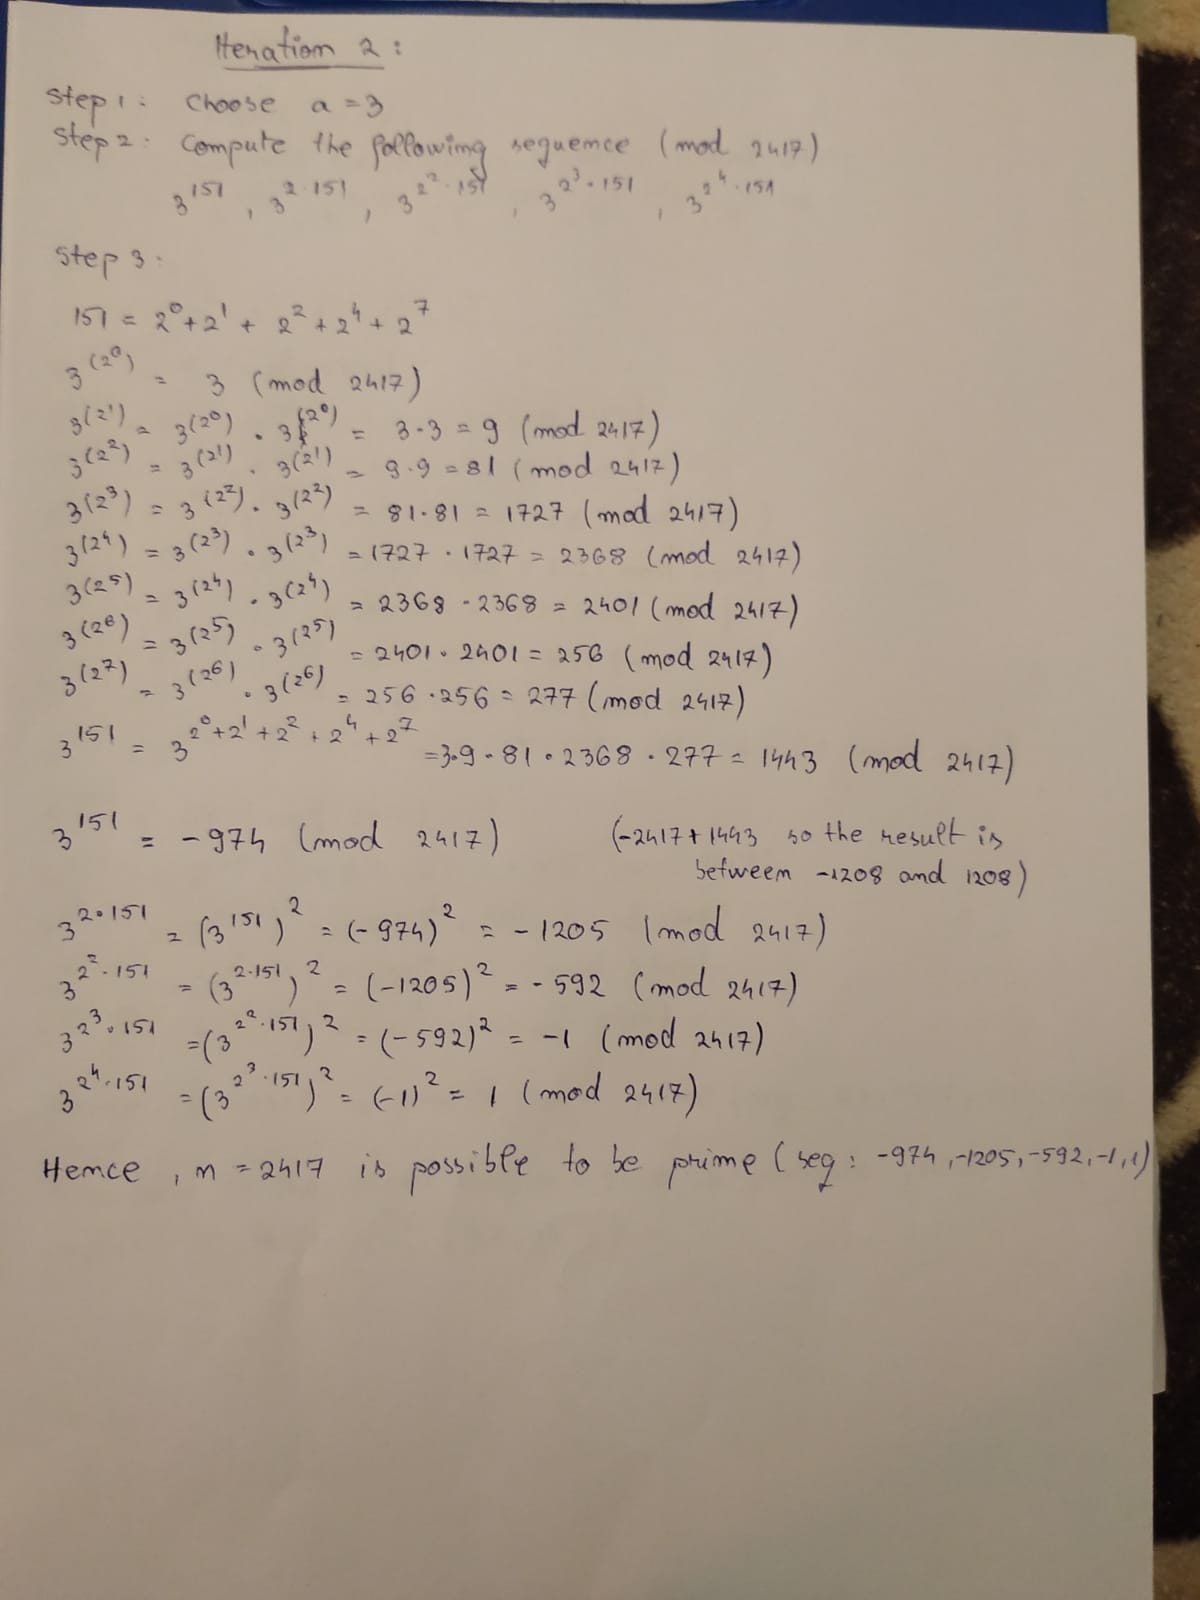 Iteration 2:
Step 1: Choose a = 3
Step 2: Compute the following sequence (mod 2417)
3^151, 3^(2·151), 3^(2^2·151), 3^(2^3·151), 3^(2^4·151)
Step 3:
151 = 2^0 + 2^1 + 2^2 + 2^4 + 2^7
3^(2^0) = 3 (mod 2417)
3^(2^1) = 3^(2^0) · 3^(2^0) = 3·3 = 9 (mod 2417)
3^(2^2) = 3^(2^1) · 3^(2^1) = 9·9 = 81 (mod 2417)
3^(2^3) = 3^(2^2) · 3^(2^2) = 81·81 = 1727 (mod 2417)
3^(2^4) = 3^(2^3) · 3^(2^3) = 1727 · 1727 = 2368 (mod 2417)
3^(2^5) = 3^(2^4) · 3^(2^4) = 2368 · 2368 = 2401 (mod 2417)
3^(2^6) = 3^(2^5) · 3^(2^5) = 2401 · 2401 = 256 (mod 2417)
3^(2^7) = 3^(2^6) · 3^(2^6) = 256 · 256 = 277 (mod 2417)
3^151 = 3^(2^0+2^1+2^2+2^4+2^7) = 3·9·81·2368·277 = 1443 (mod 2417)
3^151 = -974 (mod 2417) (-2417+1443 so the result is
between -1208 and 1208)
3^(2·151) = (3^151)^2 = (-974)^2 = -1205 (mod 2417)
3^(2^2·151) = (3^(2·151))^2 = (-1205)^2 = -592 (mod 2417)
3^(2^3·151) = (3^(2^2·151))^2 = (-592)^2 = -1 (mod 2417)
3^(2^4·151) = (3^(2^3·151))^2 = (-1)^2 = 1 (mod 2417)
Hence, n = 2417 is possible to be prime (seq: -974, -1205, -592, -1, 1)